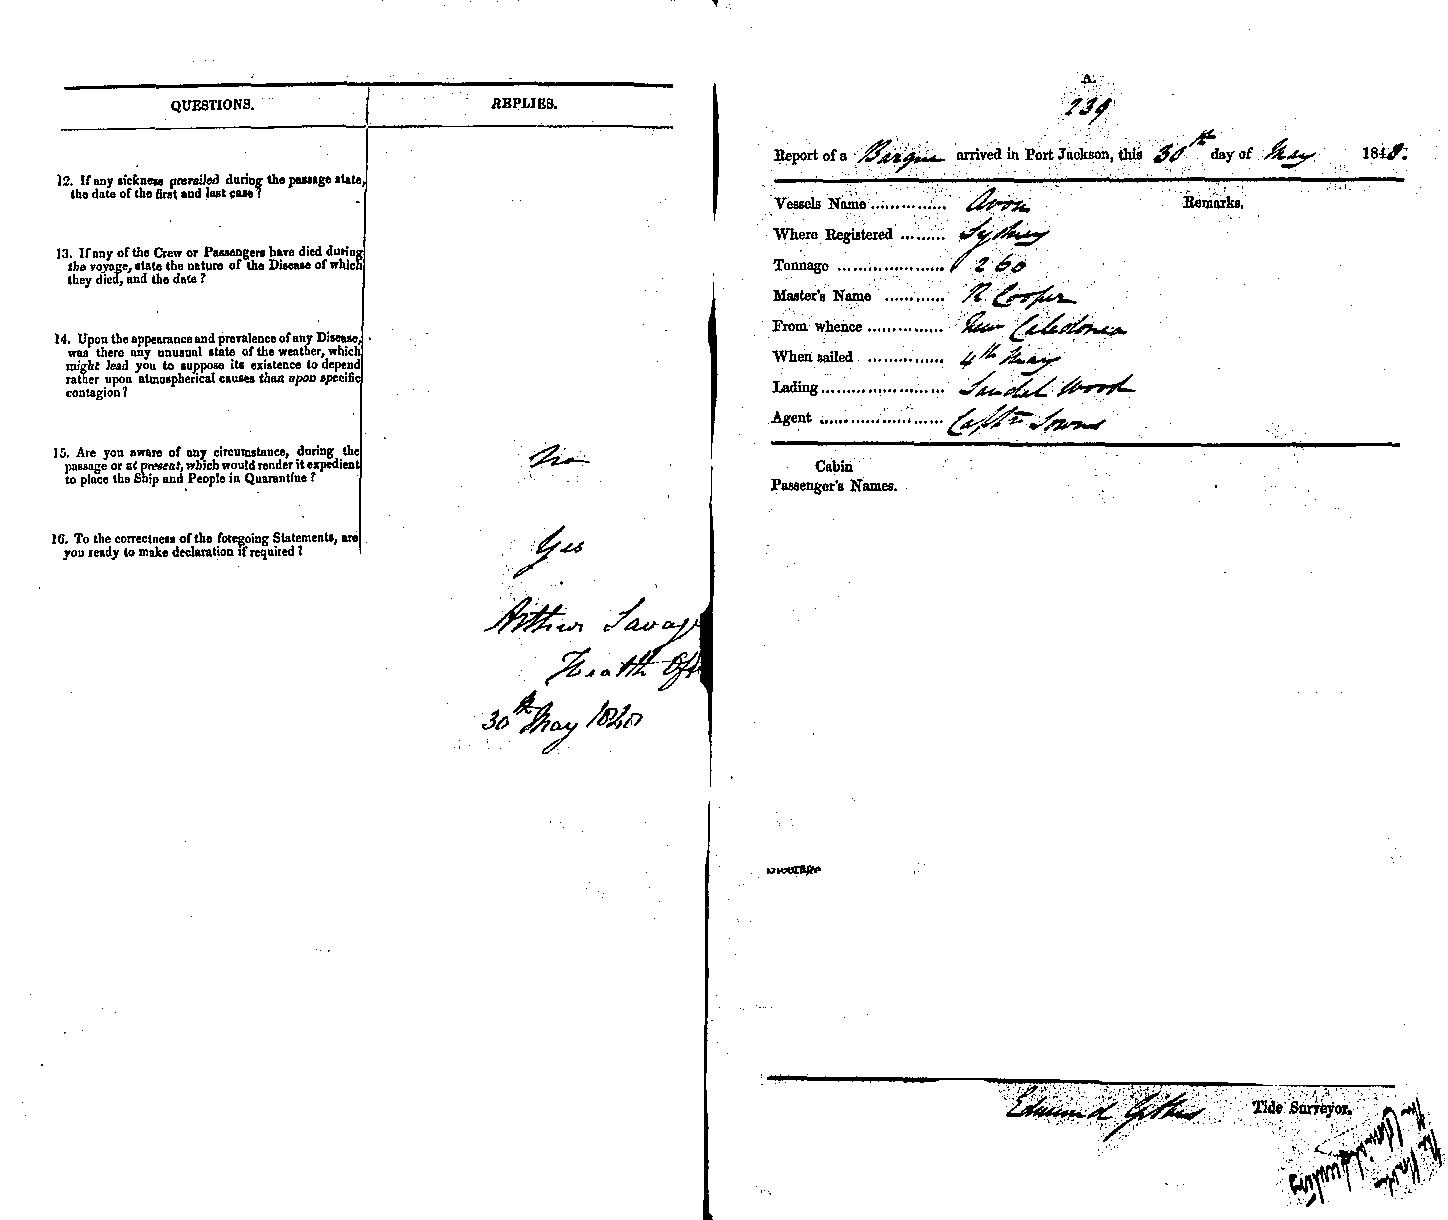 QUESTIONS.
REPLIES.
12. If any sickness prevailed during the passage state,
the date of the first and last case?
13. If any of the Crew or Passengers have died during
the voyage, state the nature of the Disease of which
they died, and the date?
14. Upon the appearance and prevalence of any Disease,
was there any unusual state of the weather, which
might lead you to suppose its existence to depend
rather upon atmospherical causes than upon specific
contagion?
15. Are you aware of any circumstance, during the
passage or at present, which would render it expedient
to place the Ship and People in Quarantine?
No
16. To the correctness of the foregoing Statements, are
you ready to make declaration if required?
Yes
Arthur Savage
Health Off
30th May 1848
A.
239
Report of a Barque arrived in Port Jackson, this 30th day of May 1848.
Vessels Name Avon
Remarks.
Where Registered Sydney
Tonnage 260
Master's Name R Cooper
From whence New Caledonia
When sailed 4th May
Lading Sandal Wood
Agent Captn Towns
Cabin
Passenger's Names.
Edmund Tide Surveyor.